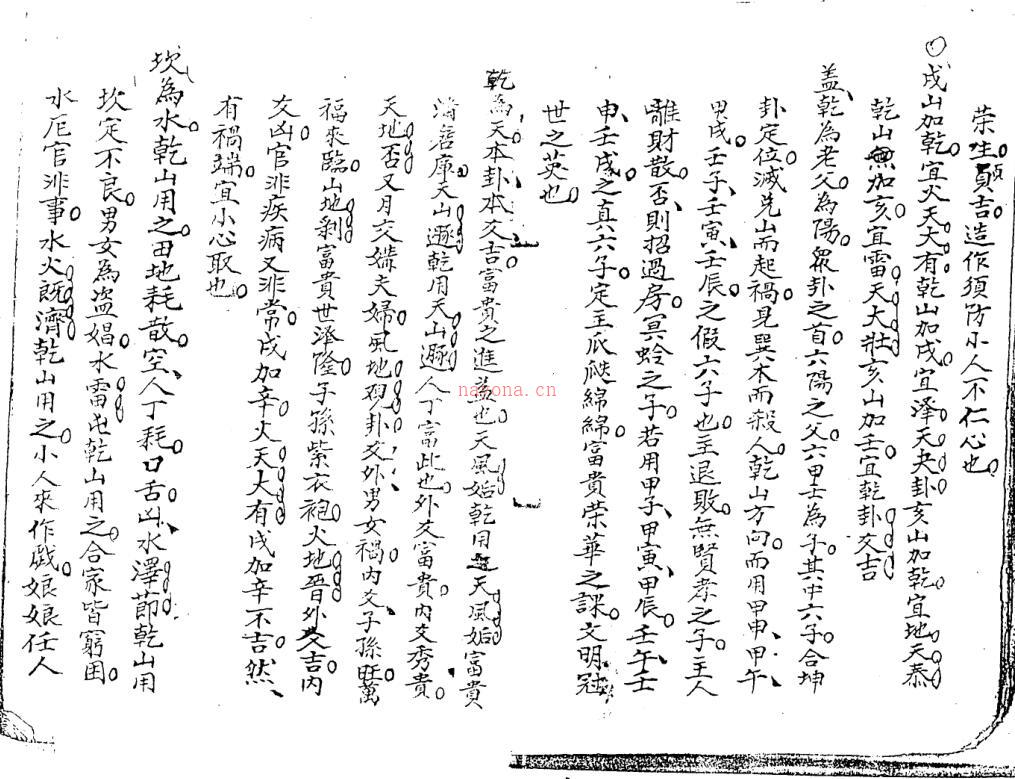 荣生贡吉造作须防小人不仁心也
戍山加乾宜火天大有乾山加戍宜泽天夬卦亥山加乾宜地天泰
乾山無加亥宜雷天大壯亥山加壬宜乾卦爻吉
盖乾為老父為陽眾卦之首六陽之父六甲壬為子其中六子合坤
卦定位滅兑山而起禍見巽木而殺人乾山方向而用甲申甲午
甲戌壬子壬寅壬辰之假六子也主退敗無賢孝之子主人
離財散否則招過房冥蛉之子若用甲子甲寅甲辰壬午壬
申壬戍之真六子定主瓜瓞綿綿富貴荣華之課文明冠
世之英也
乾為天本卦本爻吉富貴之進益也天風姤乾用天風姤富貴
滿庫天山遯乾用天山遯人丁富此也外爻富貴内爻秀貴
天地否又月爻嬬夫婦風地观卦爻外男女禍内爻子孫旺萬
福來臨山地剥富貴世泽隆子孫紫衣袍火地晋外爻吉内
爻凶官非疾病又非常戍加辛火天大有戍加辛不吉然
有禍端宜小心取也
坎為水乾山用之田地耗散空人丁耗口舌凶水澤節乾山用
坎定不良男女為盗娼水雷屯乾山用之合家皆窮困
水厄官非事水火既濟乾山用之小人來作戲娘娘任人
nayona.cn